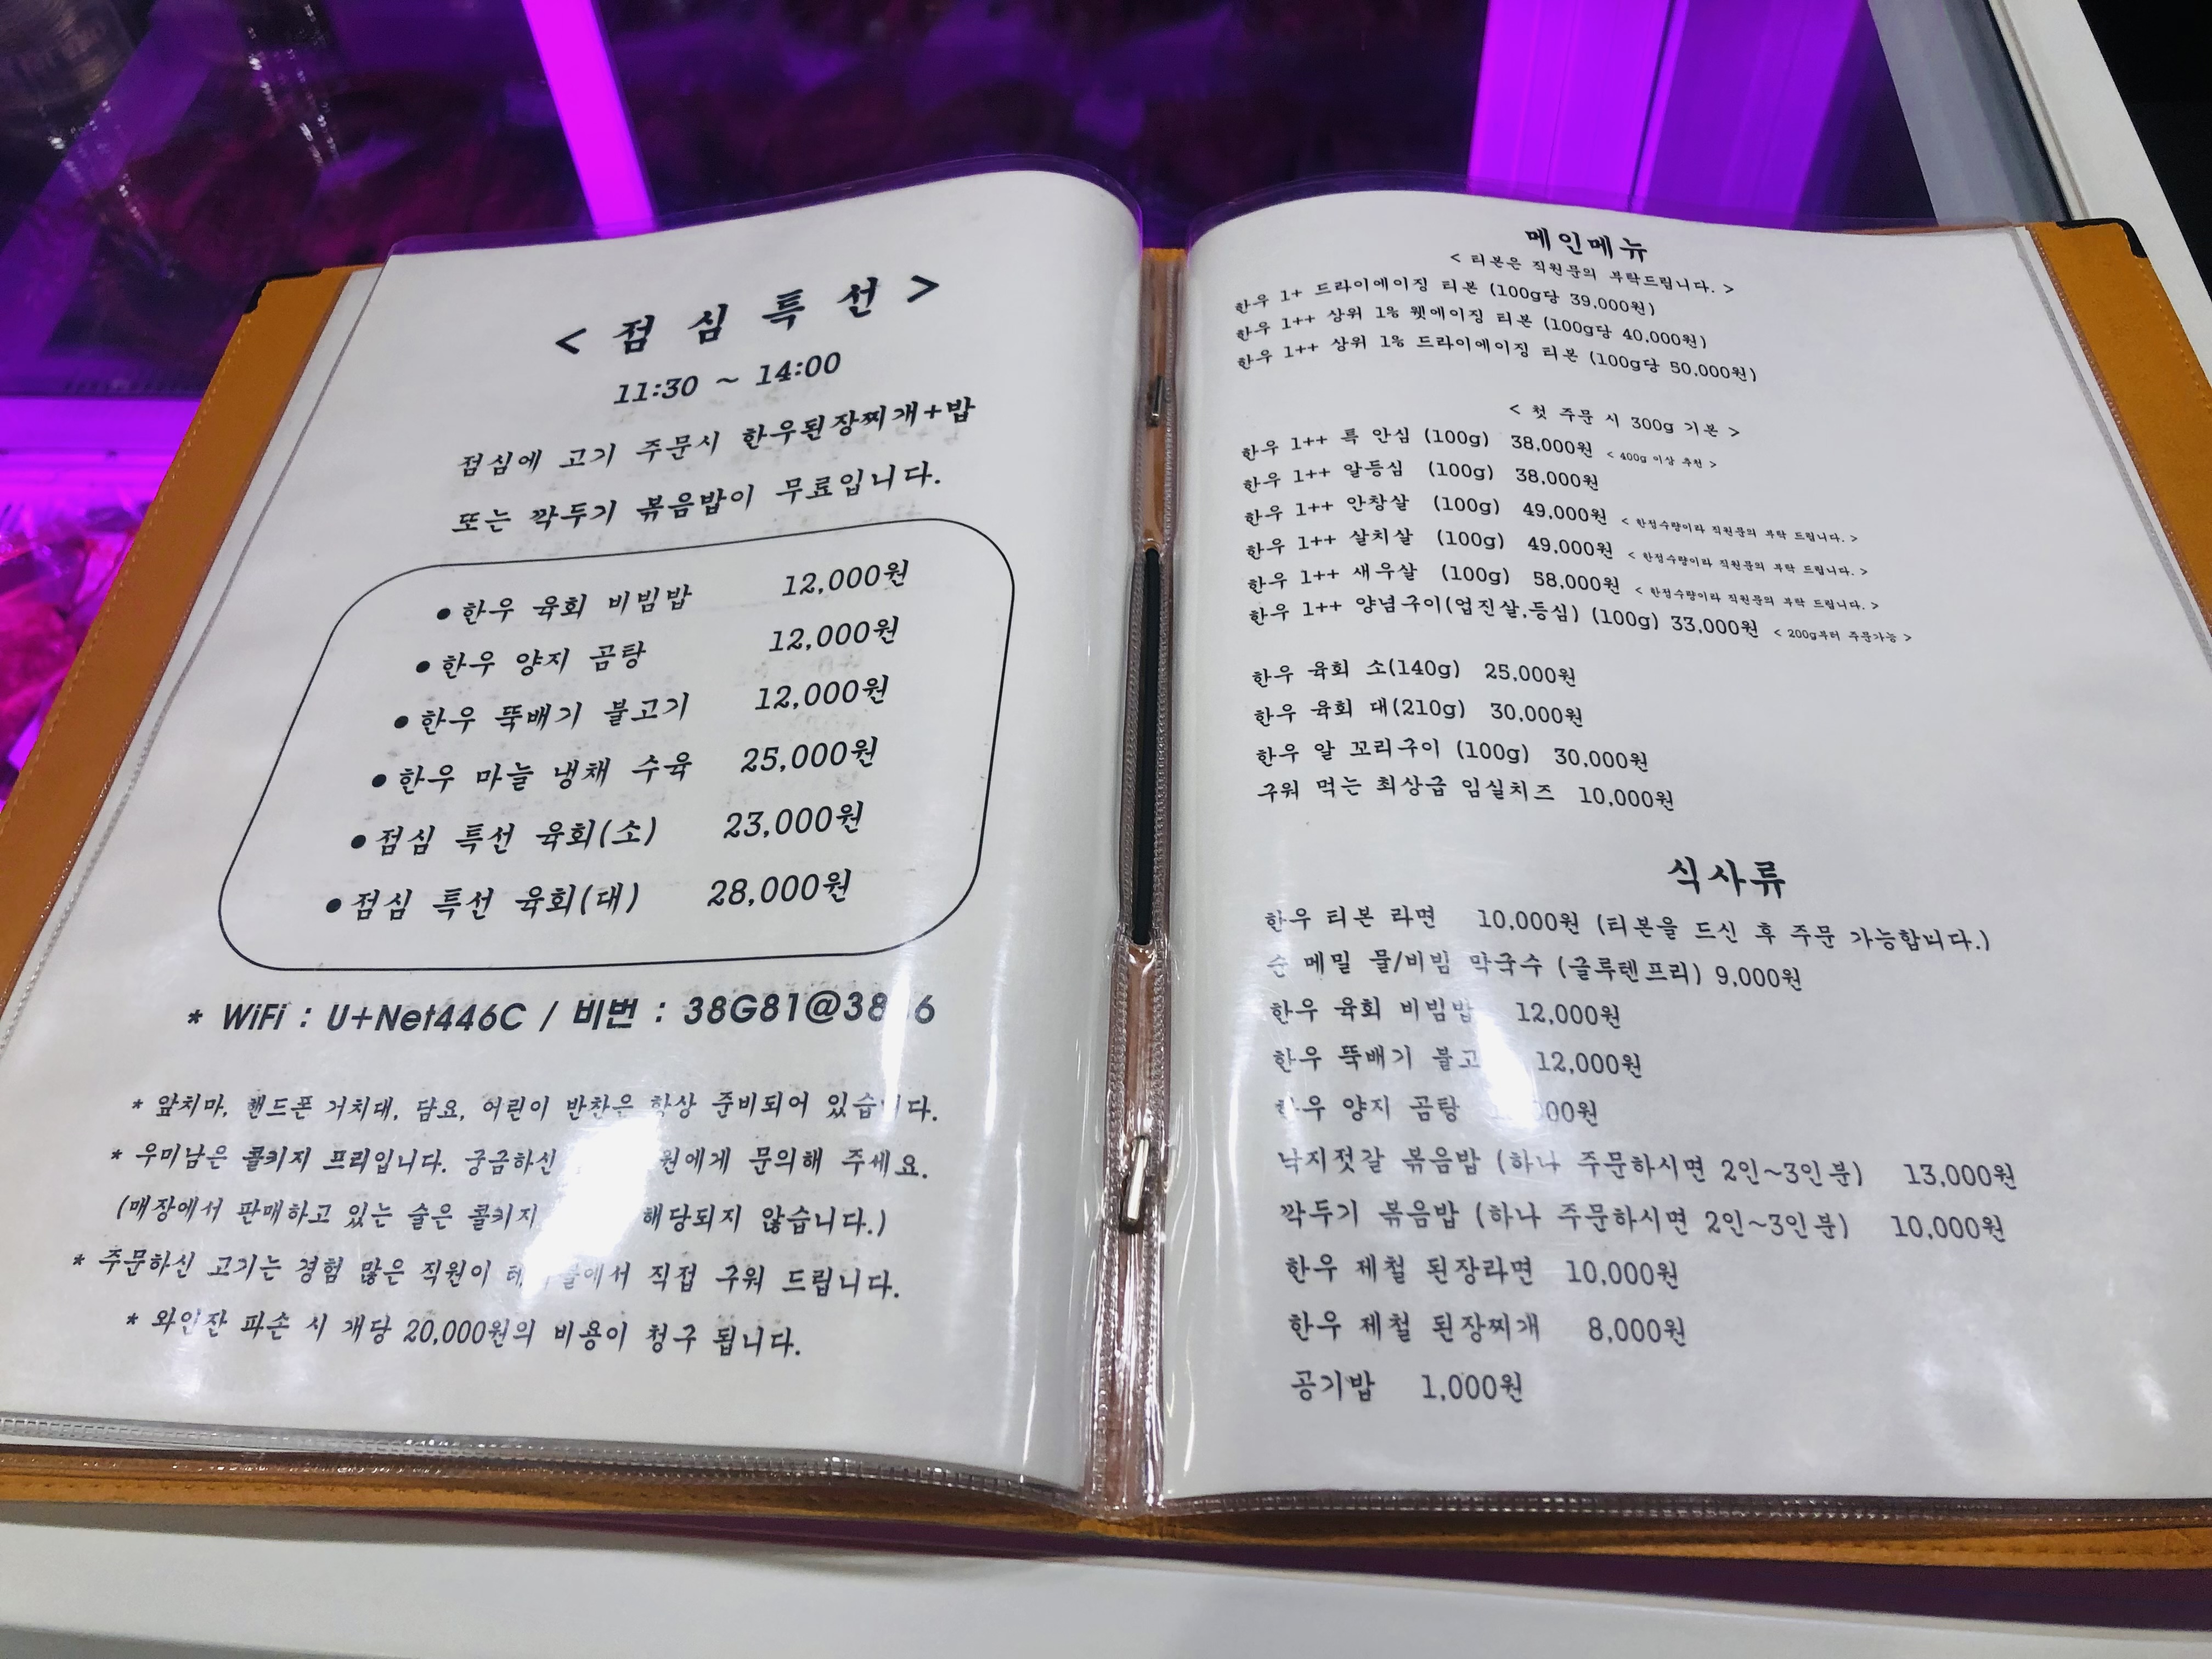 < 점 심 특 선 >
11:30 ~ 14:00
점심에 고기 주문시 한우된장찌개+밥
또는 깍두기 볶음밥이 무료입니다.
● 한우 육회 비빔밥 12,000원
● 한우 양지 곰탕 12,000원
● 한우 뚝배기 불고기 12,000원
● 한우 마늘 냉채 수육 25,000원
● 점심 특선 육회(소) 23,000원
● 점심 특선 육회(대) 28,000원
* WiFi : U+Net446C / 비번 :
* 앞치마, 핸드폰 거치대, 담요, 어린이 반찬은 항상 준비되어 있습니다.
* 우미남은 콜키지 프리입니다. 궁금하신 문의해 주세요.
(매장에서 판매하고 있는 술은 콜키지 해당되지 않습니다.)
* 주문하신 고기는 경험 많은 직원이 직접 구워 드립니다.
* 와인잔 파손 시 개당 20,000원의 비용이 청구 됩니다.
메인메뉴
< 티본은 직원문의 부탁드립니다. >
한우 1+ 드라이에이징 티본 (100g당 39,000원)
한우 1++ 상위 1% 웻에이징 티본 (100g당 40,000원)
한우 1++ 상위 1% 드라이에이징 티본 (100g당 50,000원)
< 첫 주문 시 300g 기본 >
한우 1++ 특 안심 (100g) 38,000원 < 400g 이상 추천 >
한우 1++ 알등심 (100g) 38,000원
한우 1++ 안창살 (100g) 49,000원 < 한정수량이라 직원문의 부탁 드립니다. >
한우 1++ 살치살 (100g) 49,000원 < 한정수량이라 직원문의 부탁 드립니다. >
한우 1++ 새우살 (100g) 58,000원 < 한정수량이라 직원문의 부탁 드립니다. >
한우 1++ 양념구이(업진살,등심) (100g) 33,000원 < 200g부터 주문가능 >
한우 육회 소(140g) 25,000원
한우 육회 대(210g) 30,000원
한우 알 꼬리구이 (100g) 30,000원
구워 먹는 최상급 임실치즈 10,000원
식사류
한우 티본 라면 10,000원 (티본을 드신 후 주문 가능합니다.)
순 메밀 물/비빔 막국수 (글루텐프리) 9,000원
한우 육회 비빔밥 12,000원
한우 뚝배기 12,000원
한우 양지 곰탕
낙지젓갈 볶음밥 (하나 주문하시면 2인~3인분) 13,000원
깍두기 볶음밥 (하나 주문하시면 2인~3인분) 10,000원
한우 제철 된장라면 10,000원
한우 제철 된장찌개 8,000원
공기밥 1,000원